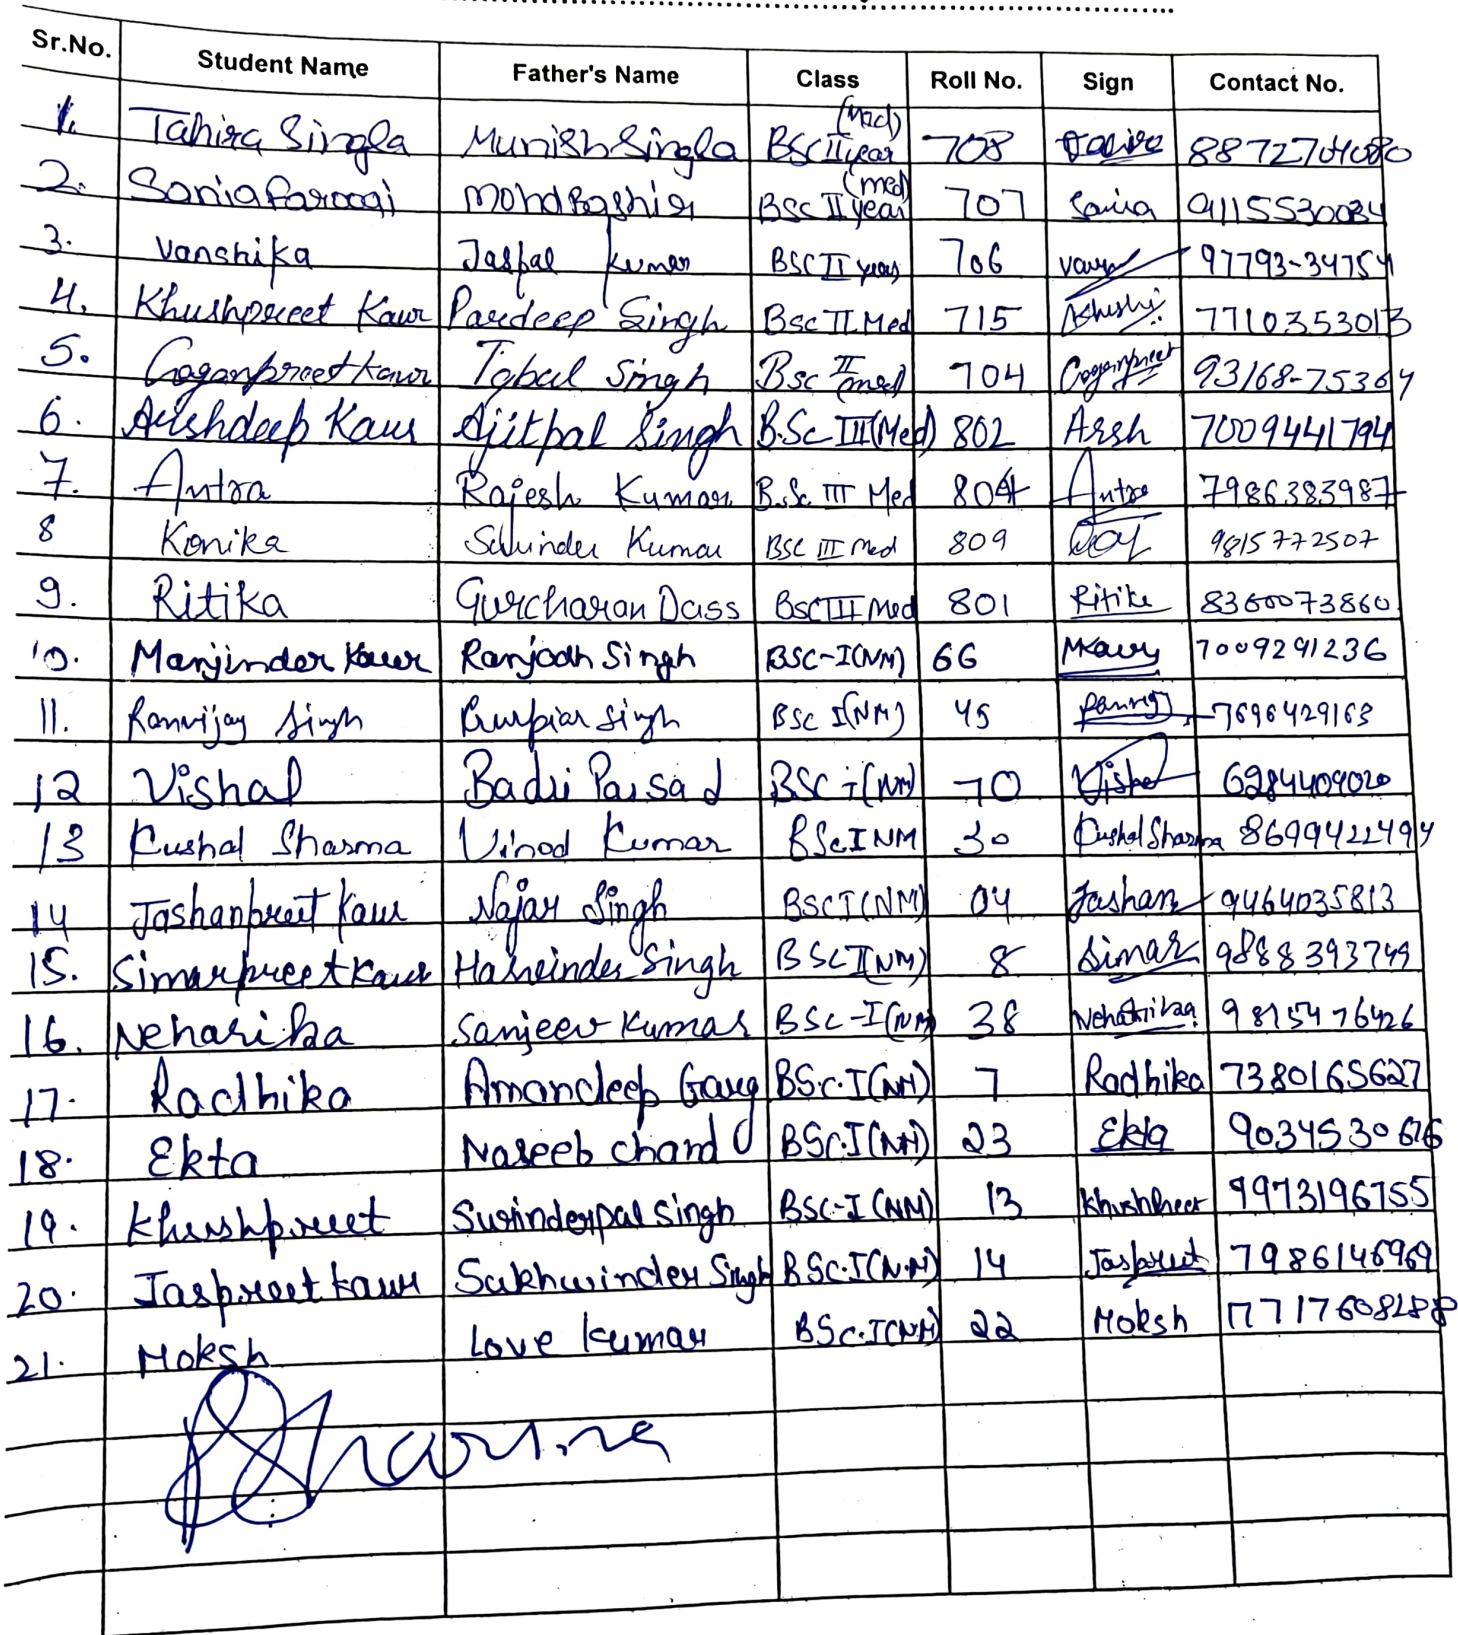 Sr.No. Student Name Father's Name Class Roll No. Sign Contact No.
1. Tahira Singla Munish Singla BSc II year (Med) 708 8872704080
2. Sania farooqi Mohd Bashir BSc II year (med) 707 Sania 9115530034
3. Vanshika Jaspal Kumar BSC II year 706 97793-34754
4. Khushpreet Kaur Pardeep Singh Bsc II Med 715 Khushi 7710353013
5. Gaganpreet Kaur Iqbal Singh Bsc II med 704 Gaganpreet 93168-75364
6. Arshdeep Kaur Ajitpal Singh B.Sc III (Med) 802 Arsh 7009441794
7. Antra Rajesh Kumar B.Sc III Med 804 Antra 7986383987
8 Konika Kumar BSC III Med 809 9815772507
9. Ritika Gurcharan Dass BSc III Med 801 Ritika 8360073860
10. Manjinder Kaur Ranjodh Singh BSC-I(NM) 66 MKaur 7009291236
11. Ranvijay Singh Gurpiar Singh BSc I(NM) 45 7696429163
12 Vishal Badri Parsad BSC I (NM) 70 Vishal 6284409020
13 Kushal Sharma Vinod Kumar BSc I NM 30 Kushal Sharma 8699422494
14 Jashanpreet Kaur Najar Singh BSC I (NM) 04 Jashan 9464035813
15. Simarpreet Kaur Harvinder Singh BSC I(NM) 8 Simar 9888393749
16. Neharika Sanjeev Kumar BSc-I(NM) 38 Neharika 9815476426
17. Radhika Amandeep Garg BSc.I(NM) 7 Radhika 7380165627
18. Ekta Naseeb chand BSc.I(NM) 23 Ekta 9034530676
19. Khushpreet Surinderpal Singh BSC-I (NM) 13 Khushpreet 9973196755
20. Jaspreet kaur Sukhwinder Singh BSc.I(N.M) 14 Jaspreet 7986146969
21. Moksh Love kumar BSc.I(NM) 22 Moksh 7717608288
Sharma